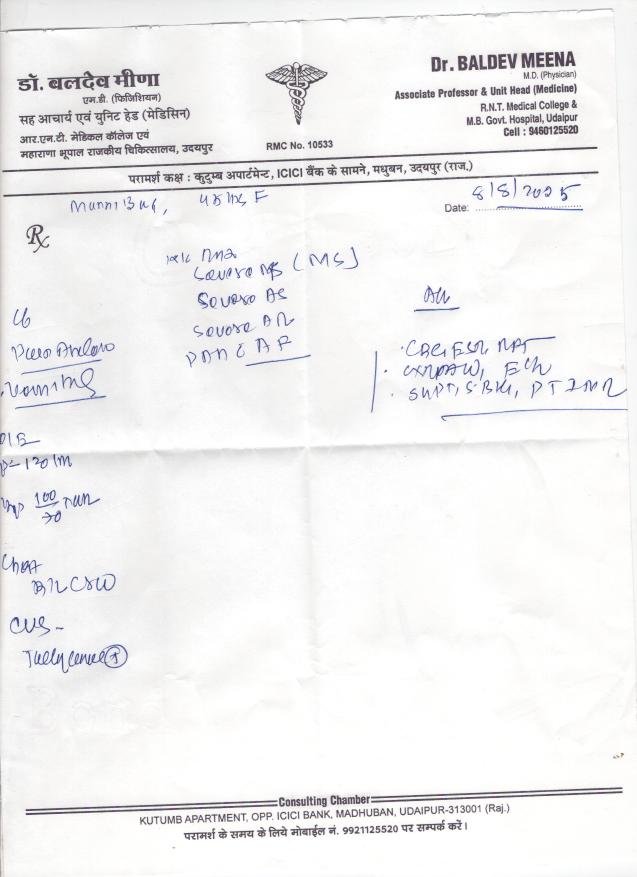 डॉ. बलदेव मीणा
एम.डी. (फिजिशियन)
सह आचार्य एवं युनिट हेड (मेडिसिन)
आर.एन.टी. मेडिकल कॉलेज एवं
महाराणा भूपाल राजकीय चिकित्सालय, उदयपुर
RMC No. 10533
Dr. BALDEV MEENA
M.D. (Physician)
Associate Professor & Unit Head (Medicine)
R.N.T. Medical College &
M.B. Govt. Hospital, Udaipur
Cell : 9460125520
परामर्श कक्ष : कुटुम्ब अपार्टमेन्ट, ICICI बैंक के सामने, मधुबन, उदयपुर (राज.)
Munni Bai, F
Date: 8/8/2025
Rx
Severe MS (MS)
Severe AS
Severe AR
AF
Adv
c/o
Vomiting
CBC, ESR, RFT
ECG
PT INR
O/E
P= 120/m
100/70
Chest
CVS -
Consulting Chamber
KUTUMB APARTMENT, OPP. ICICI BANK, MADHUBAN, UDAIPUR-313001 (Raj.)
परामर्श के समय के लिये मोबाईल नं. 9921125520 पर सम्पर्क करें।